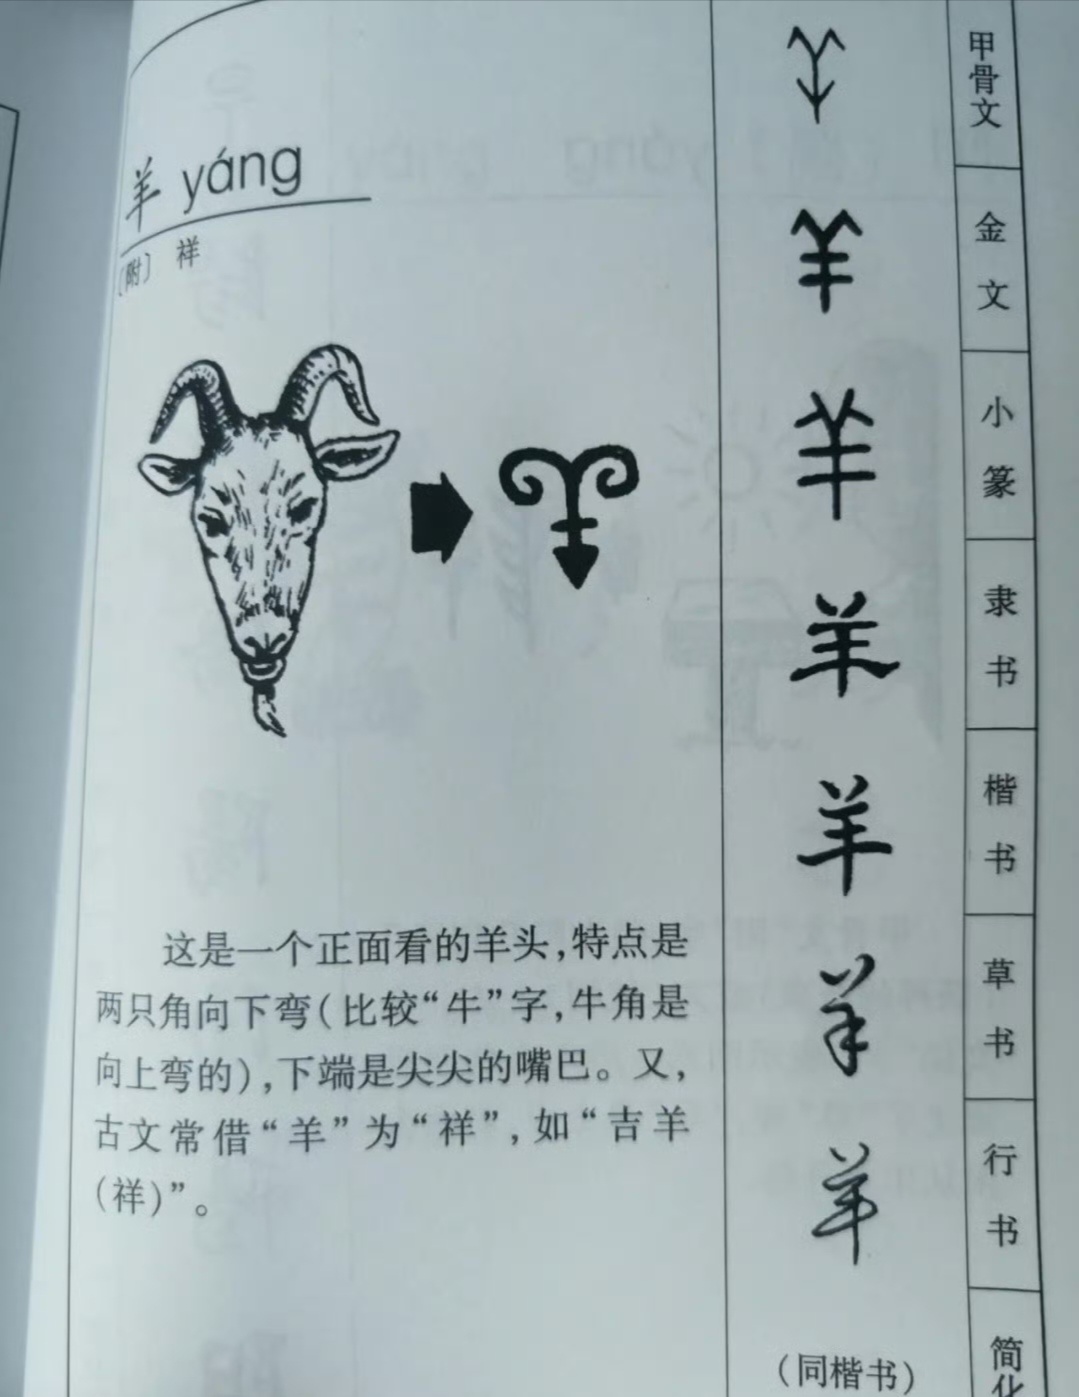 羊 yáng
〔附〕 祥
这是一个正面看的羊头,特点是
两只角向下弯(比较“牛”字,牛角是
向上弯的),下端是尖尖的嘴巴。又,
古文常借“羊”为“祥”,如“吉羊
(祥)”。
甲骨文
羊
金文
羊
小篆
羊
隶书
羊
楷书
羊
草书
羊
行书
(同楷书)
简化